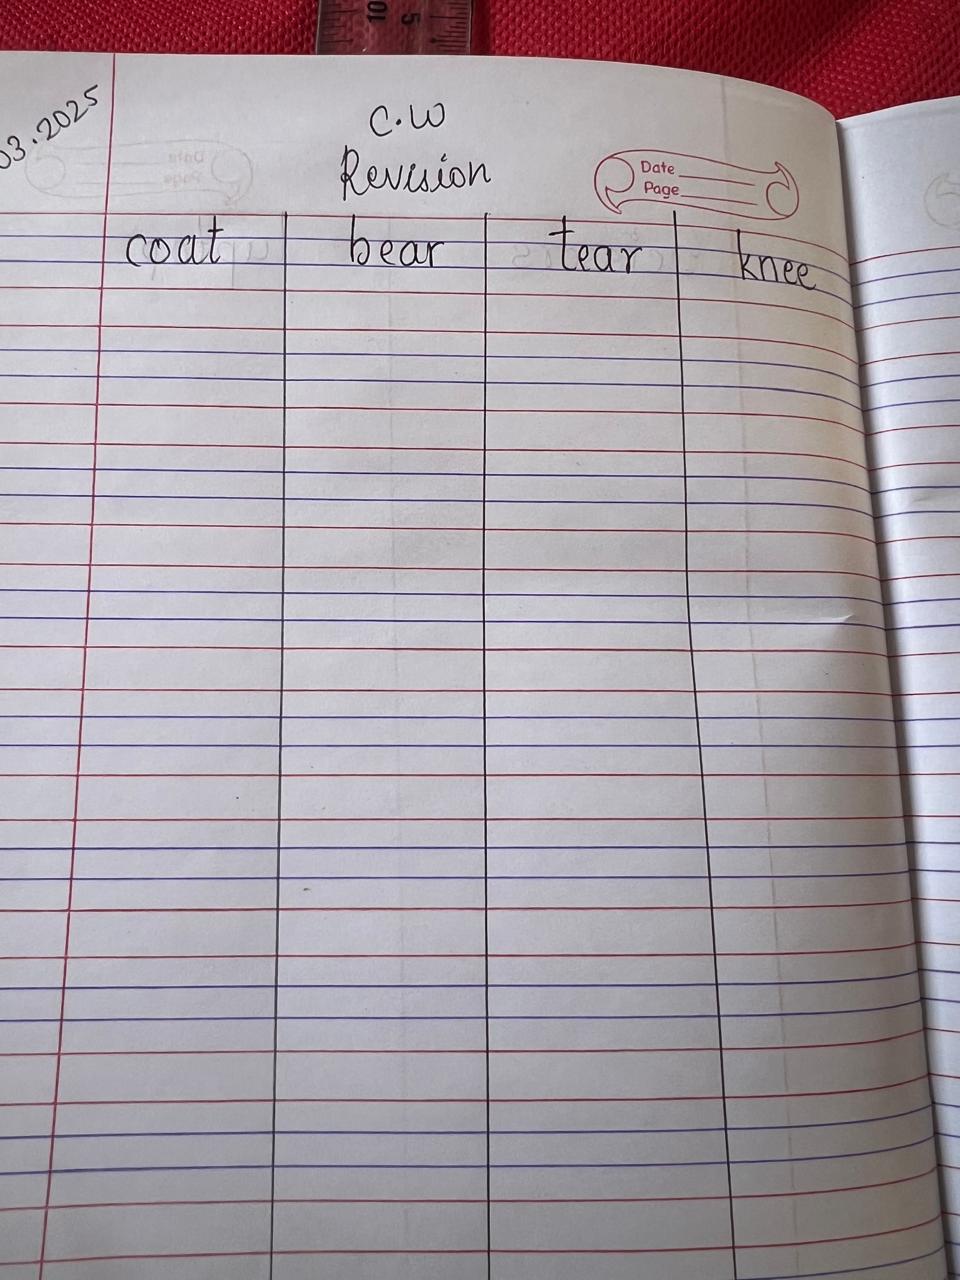 03.2025
C.W
Revision
Date
Page
coat bear tear knee
10 5